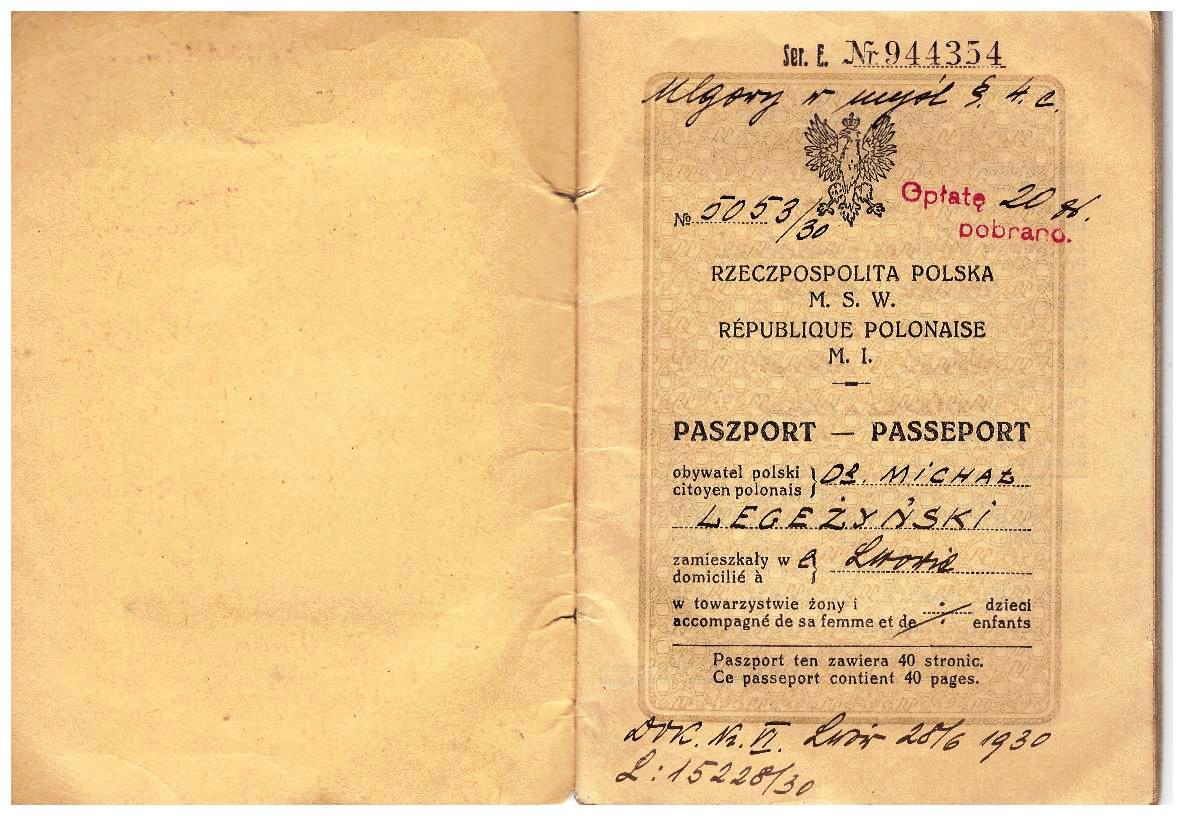 Ser. E. Nr 944354
Ulgowy w myśl §. 4. c.
№ 5053/30
Opłatę 20 zł.
pobrano.
RZECZPOSPOLITA POLSKA
M. S. W.
RÉPUBLIQUE POLONAISE
M. I.
PASZPORT — PASSEPORT
obywatel polski
citoyen polonais } Dr. MICHAŁ
LEGEŻYŃSKI
zamieszkały w e
domicilié à } Lwowie
w towarzystwie żony i dzieci
accompagné de sa femme et de enfants
Paszport ten zawiera 40 stronic.
Ce passeport contient 40 pages.
DOK. Nr. VI. Lwów 28/6 1930
L: 15228/30